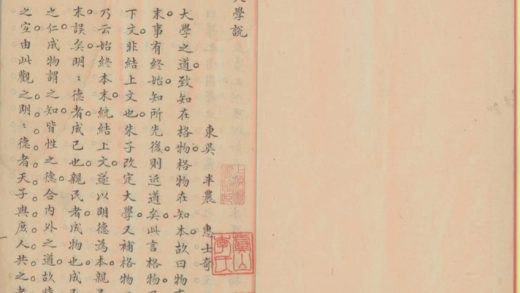 大學說
東吳 半農 惠士奇
大學之道致知在格物格物在知本故曰物
末事有終始知所先後則近道矣此言格物
下文非結上文也朱子改定大學又補格物
乃云始終本末統結上文遂以明德為本親
末誤矣明〻德者成己也親民者成物也成
之仁成物謂之知皆性之德合內外之道故時
之宜由此觀之明〻德者天子與庶人共之
虞山李氏